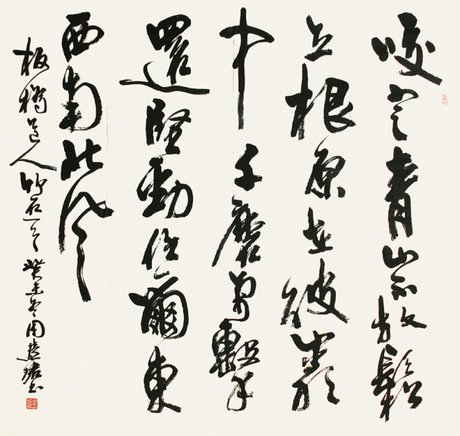 咬定青山不放鬆
立根原在破巖
中千磨萬擊
還堅勁任爾東
西南北風
板橋道人竹石 癸未 周慧珺書